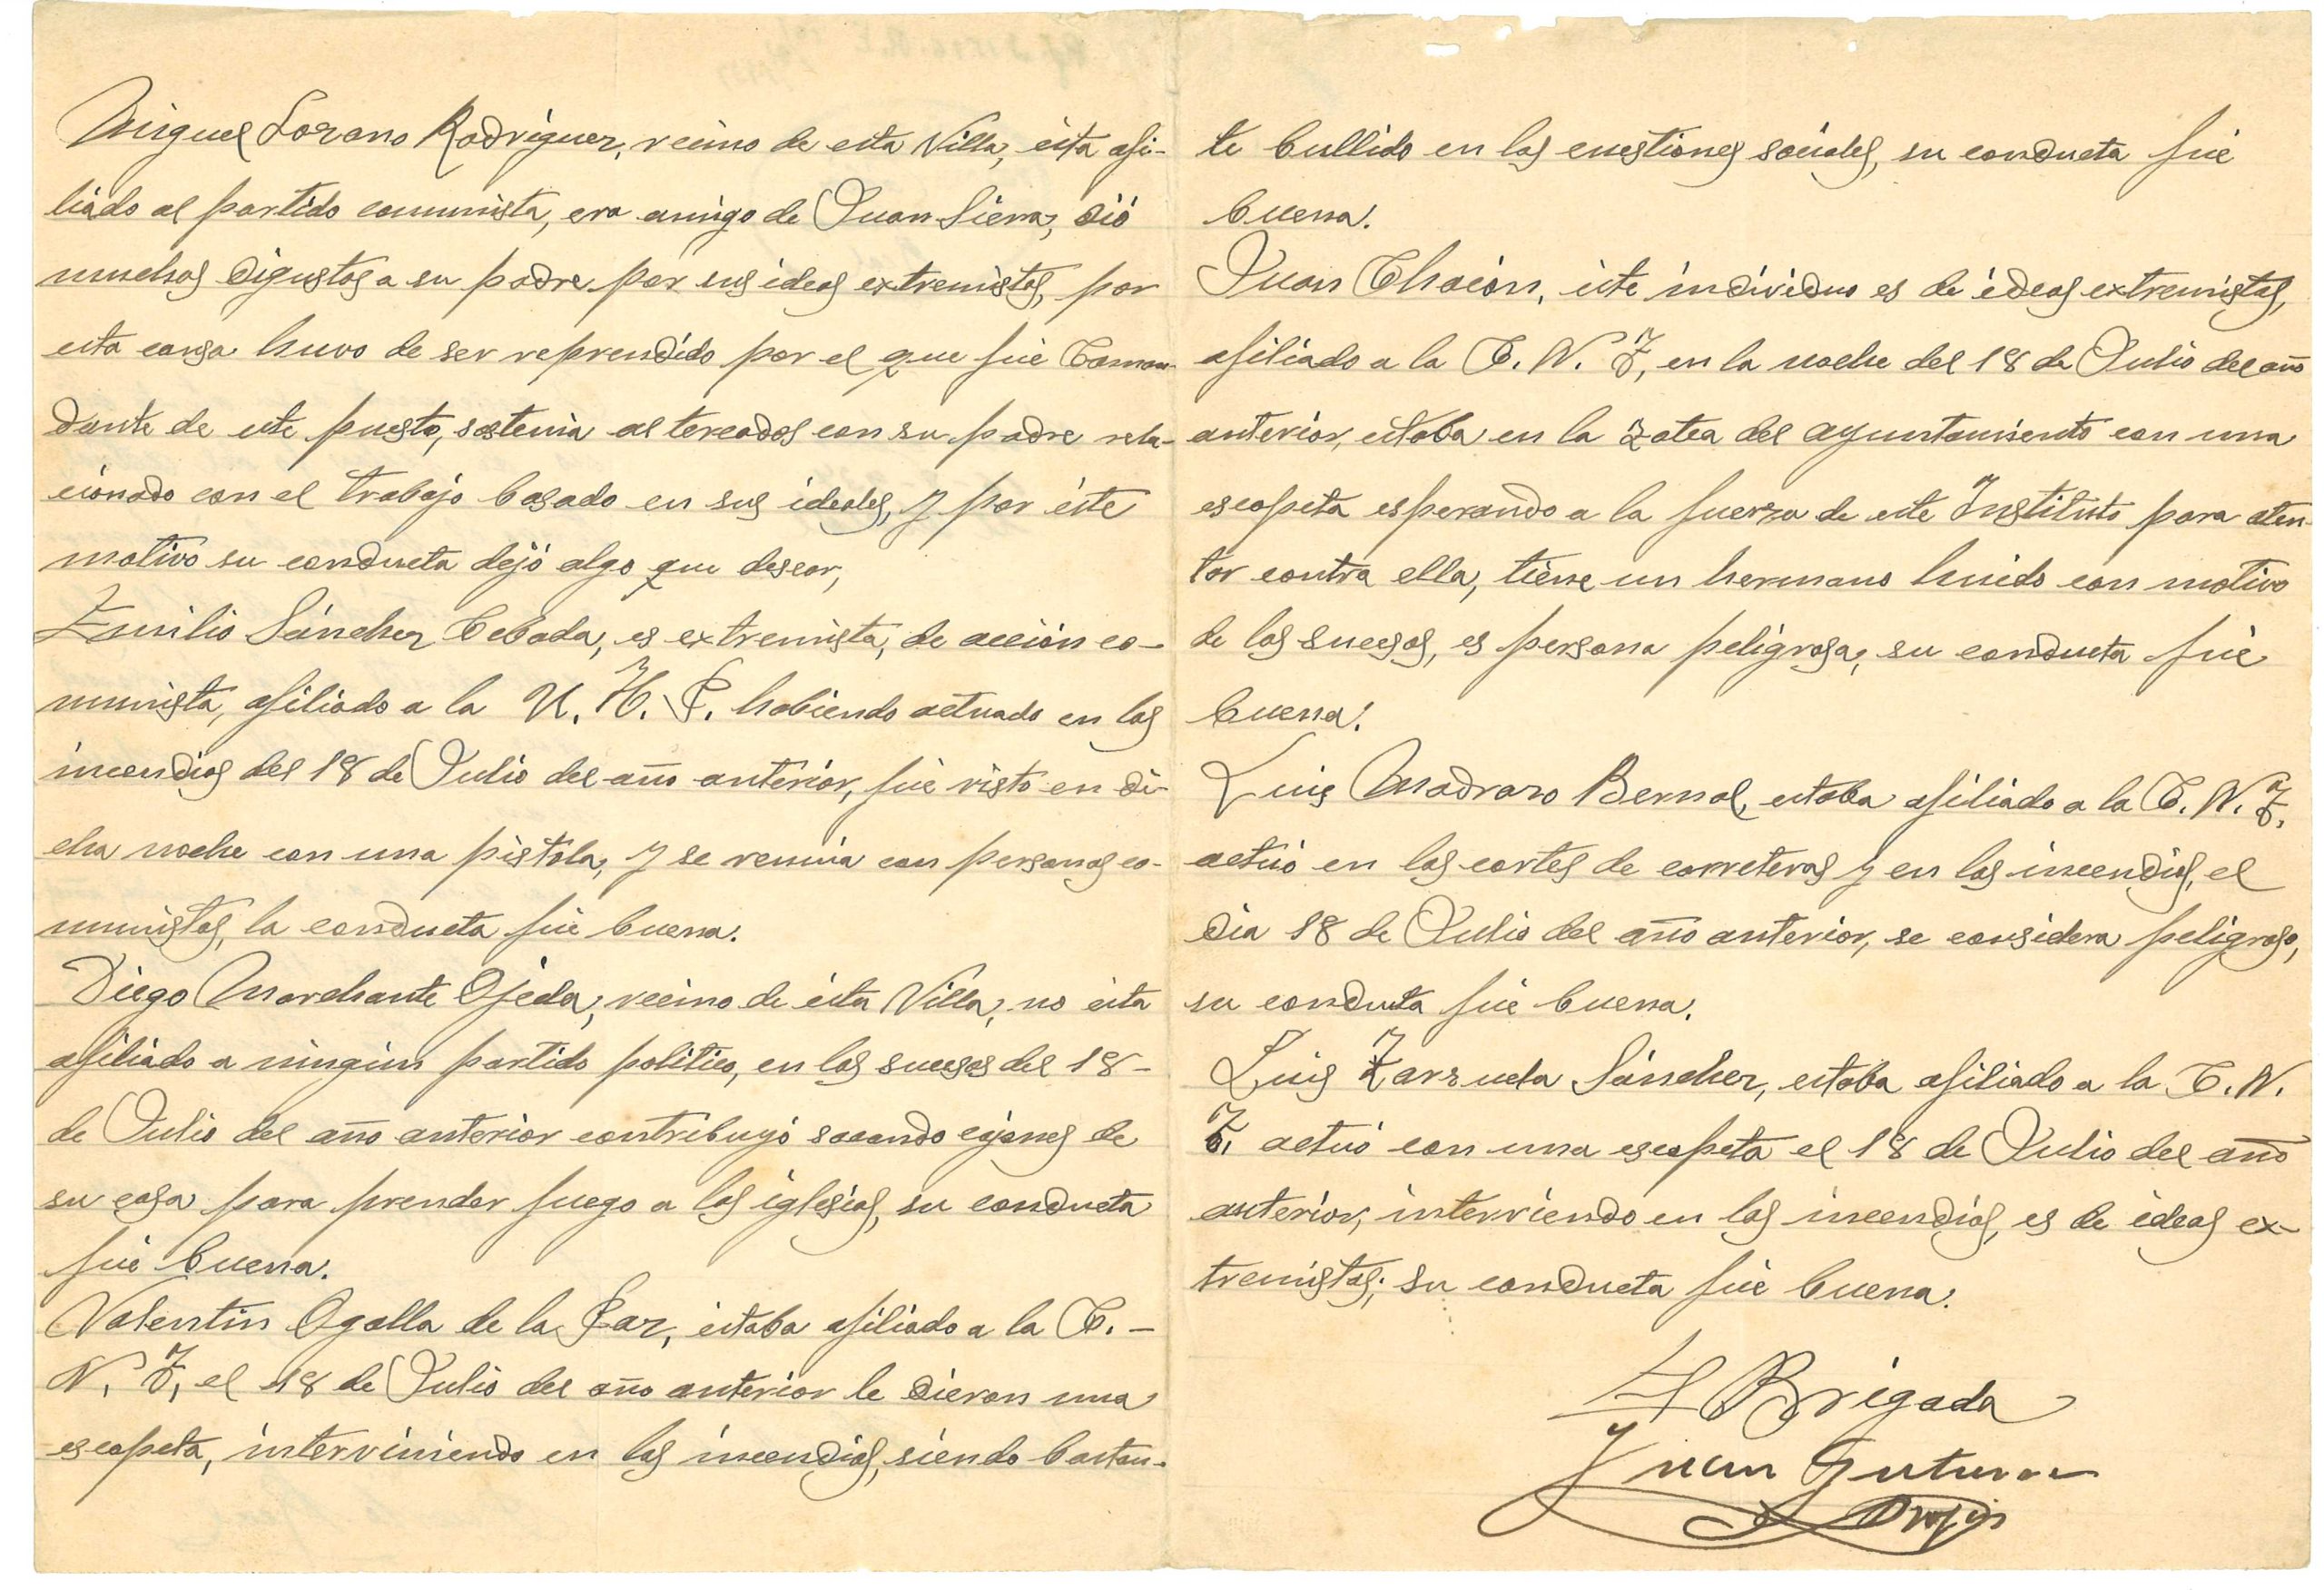 Miguel Lozano Rodriguez, vecino de esta Villa, ésta afi-
liádo al partido comunista, era amigo de Juan Sierra, dió
muchos digustos a su padre por sus ideas extremistas, por
esta causa huvo de ser reprendido por el que fué Coman-
dante de este puesto, sostenia altercados con su padre rela-
cionado con el trabajo basado en sus ideales, y por éste
motivo su conducta dejó algo que desear,
Emilio Sánchez Cebada, es extremista, de acción co-
munista, afiliado a la U. H. P. habiendo actuado en los
incendios del 18 de Julio del año anterior, fué visto en di-
cha noche con una pistola, y se reunia con personas co-
munistas, la conducta fué buena.
Diego Marchante Ojeda, vecino de ésta Villa, no ésta
afiliado a ningún partido politico, en los sucesos del 18-
de Julio del año anterior contribuyó sacando cajones de
su casa para prender fuego a las iglesias, su conducta
fué buena.
Valentin Ogalla de la Paz, éstaba afiliado a la C.-
N. T, el 18 de Julio del año anterior le dieron una
escopeta, interviniendo en los incendios, siendo bastan-
te bullido en las cuestiones sociales, su conducta fué
buena.
Juan Chacón, éste individuo es de ideas extremistas,
afiliado a la C. N. T, en la noche del 18 de Julio del año
anterior, estaba en la zotea del ayuntamiento con una
escopeta esperando a la fuerza de este Instituto para aten-
tar contra ella, tiene un hermano huido con motivo
de los sucesos, es persona peligrosa, su conducta fué
buena.
Luis Madrazo Bernal, estaba afiliado a la C. N. T.
actuó en los cortes de carreteras y en los incendios, el
dia 18 de Julio del año anterior, se considera peligroso,
su conducta fué buena.
Luis Zarzuela Sánchez, estaba afiliado a la C. N.
T. actuó con una escopeta el 18 de Julio del año
anterior, interviendo en los incendios, es de ideas ex-
tremistas; su conducta fué buena.
El Brigada
Juan